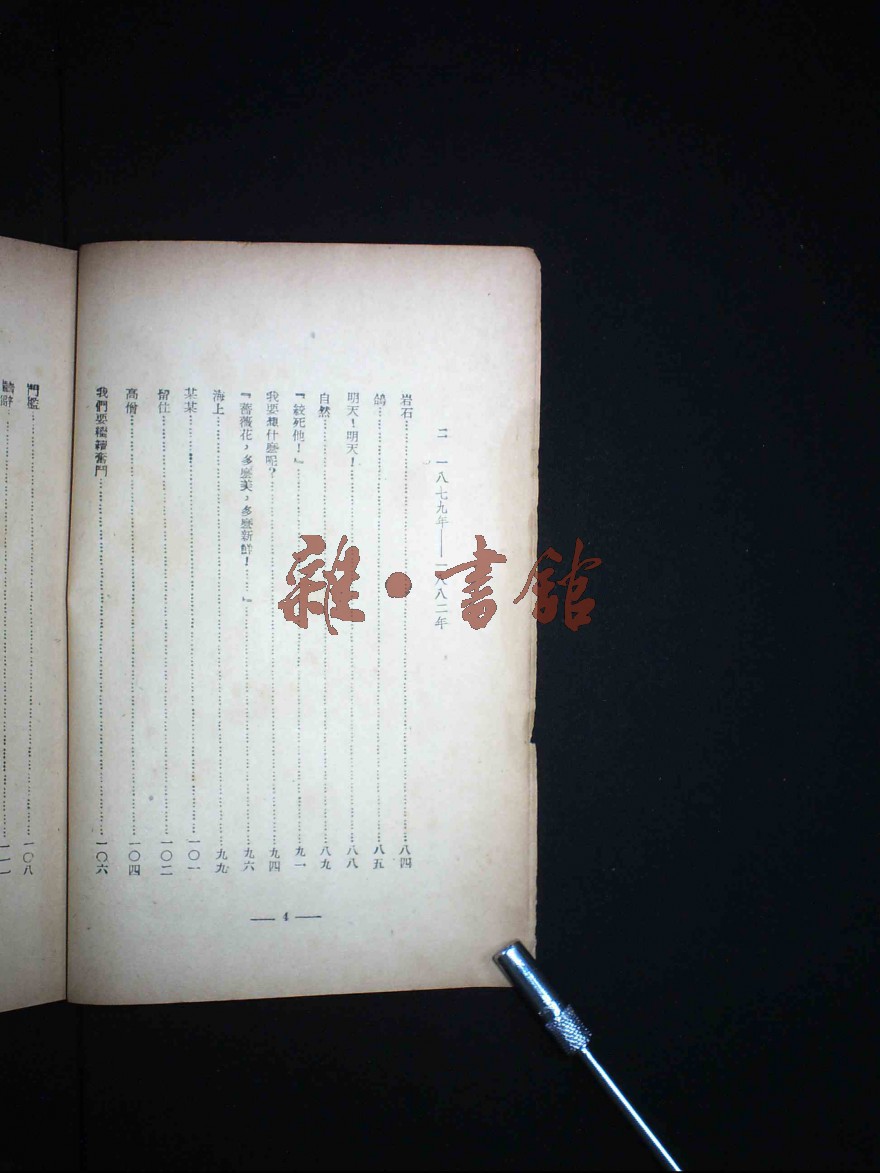 二 一八七九年——一八八二年
岩石……八四
鴿……八五
明天！明天！……八八
自然……八九
『絞死他！』……九一
我要想什麼呢？……九四
『薔薇花，多麼美，多麼新鮮！……』……九六
海上……九九
某某……一〇一
留住……一〇二
高僧……一〇四
我們要繼續奮鬥……一〇六
— 4 —
門檻……一〇八
雜·書館